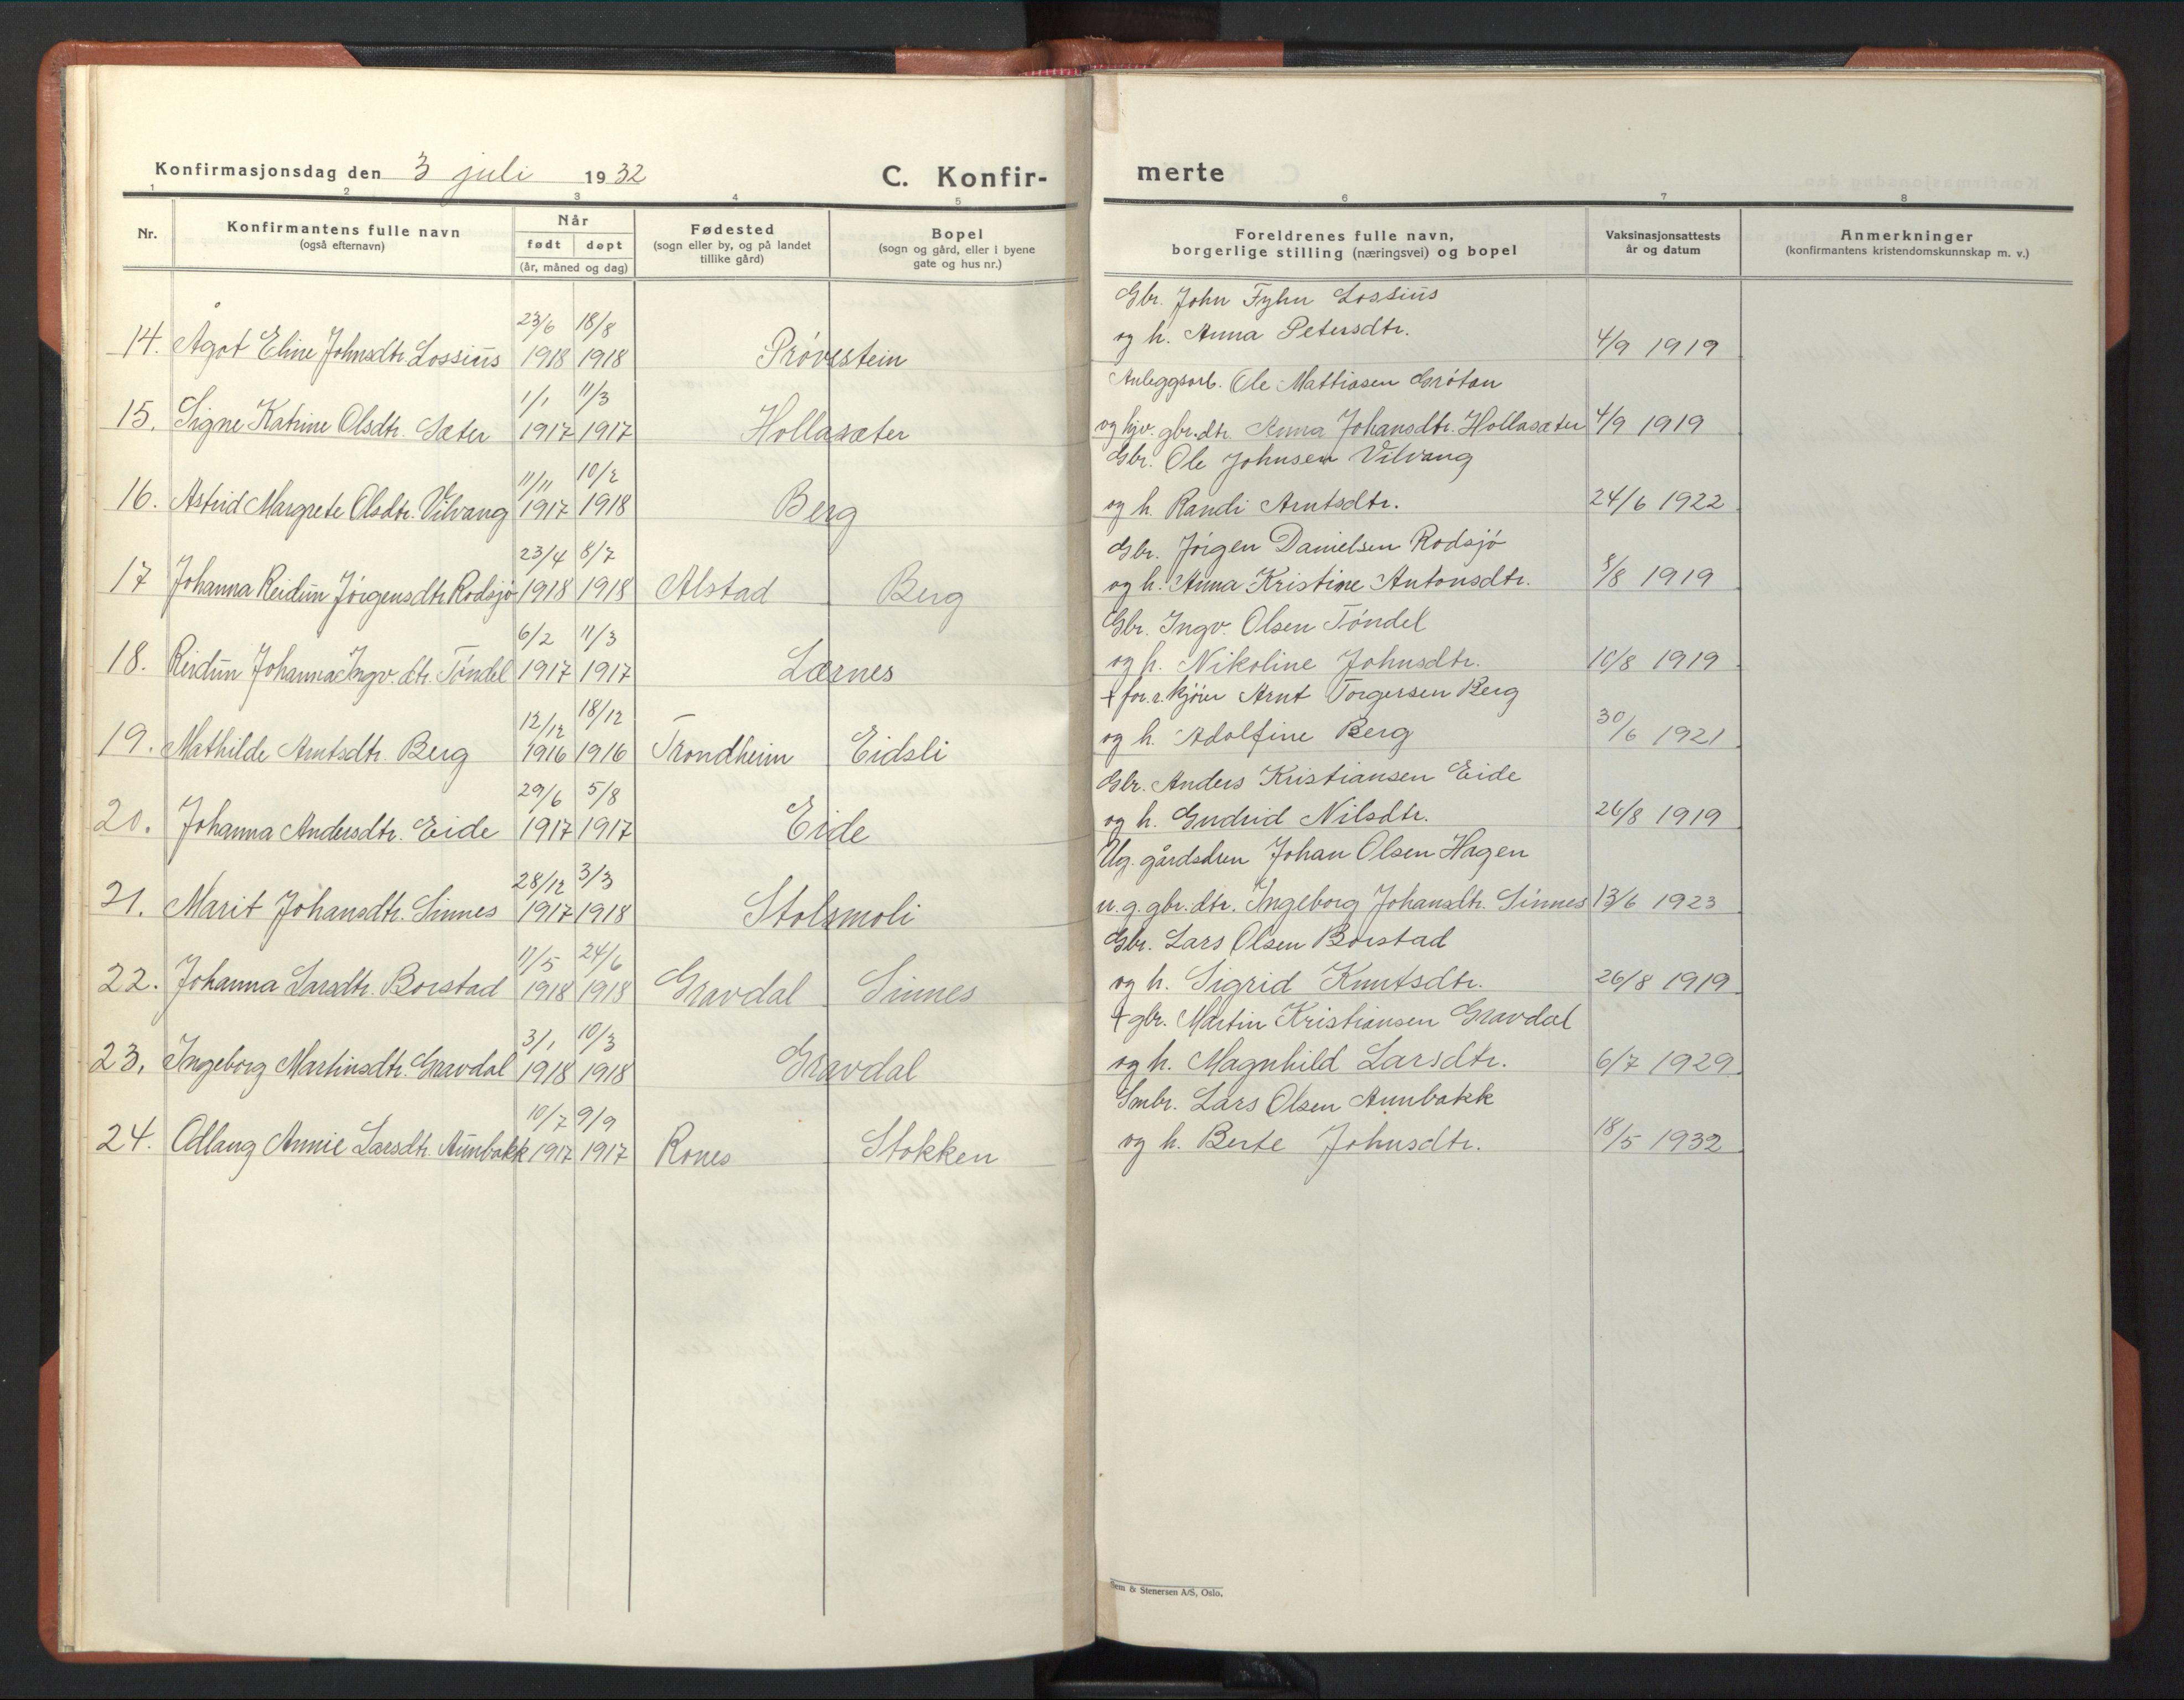 Konfirmasjonsdag den 3 juli 1932
C. Konfir-
merte
1 2 3 4 5 6 7 8
Nr.
Konfirmantens fulle navn
(også efternavn)
Når
født døpt
(år, måned og dag)
Fødested
(sogn eller by, og på landet
tillike gård)
Bopel
(sogn og gård, eller i byene
gate og hus nr.)
Foreldrenes fulle navn,
borgerlige stilling (næringsvei) og bopel
Vaksinasjonsattests
år og datum
Anmerkninger
(konfirmantens kristendomskunnskap m. v.)
23/6 18/8 Gbr. John Fyhn Lossius
14. Ågot Eline Johnsdtr. Lossius 1918 1918 Prøvestein og h. Anna Petersdtr. 4/9 1919
1/1 11/3 Anleggsarb. Ole Mattiasen Grøtan
15. Signe Katrine Olsdtr. Sæter 1917 1917 Hollasæter og hjv. gbr.dtr. Anna Johansdtr. Hollasæter 4/9 1919
11/11 10/2 Gbr. Ole Johnsen Vilvang
16. Astrid Margrete Olsdtr. Vilvang 1917 1918 Berg og h. Randi Arntsdtr. 24/6 1922
23/4 8/7 Gbr. Jørgen Danielsen Rodsjø
17 Johanna Reidun Jørgensdtr. Rodsjø 1918 1918 Alstad Berg og h. Anna Kristine Antonsdtr. 8/8 1919
6/2 11/3 Gbr. Ingv. Olsen Tøndel
18. Reidun Johanna Ingv. dtr. Tøndel 1917 1917 Lærnes og h. Nikoline Johnsdtr. 10/8 1919
12/12 18/12 + for.r. kjører Arnt Torgersen Berg
19. Mathilde Arntsdtr. Berg 1916 1916 Trondheim Eidsli og h. Adolfine Berg 30/6 1921
29/6 5/8 Gbr. Anders Kristiansen Eide
20. Johanna Andersdtr. Eide 1917 1917 Eide og h. Gudrid Nilsdtr. 26/8 1919
28/12 3/3 Ug. gårdsdren Johan Olsen Hagen
21. Marit Johansdtr. Sinnes 1917 1918 Stolsmoli u. g. gbr. dtr. Ingeborg Johansdtr. Sinnes 13/6 1923
11/5 24/6 Gbr. Lars Olsen Borstad
22. Johanna Larsdtr. Borstad 1918 1918 Gravdal Sinnes og h. Sigrid Knutsdtr. 26/8 1919
3/1 10/3 + gbr. Martin Kristiansen Gravdal
23. Ingeborg Martinsdtr. Gravdal 1918 1918 Gravdal og h. Magnhild Larsdtr. 6/7 1929
10/7 9/9 Smbr. Lars Olsen Aunbakk
24. Odlaug Annie Larsdtr. Aunbakk 1917 1917 Rones Stokken og h. Berte Johnsdtr. 18/5 1932
& Stenersen A/S, Oslo.